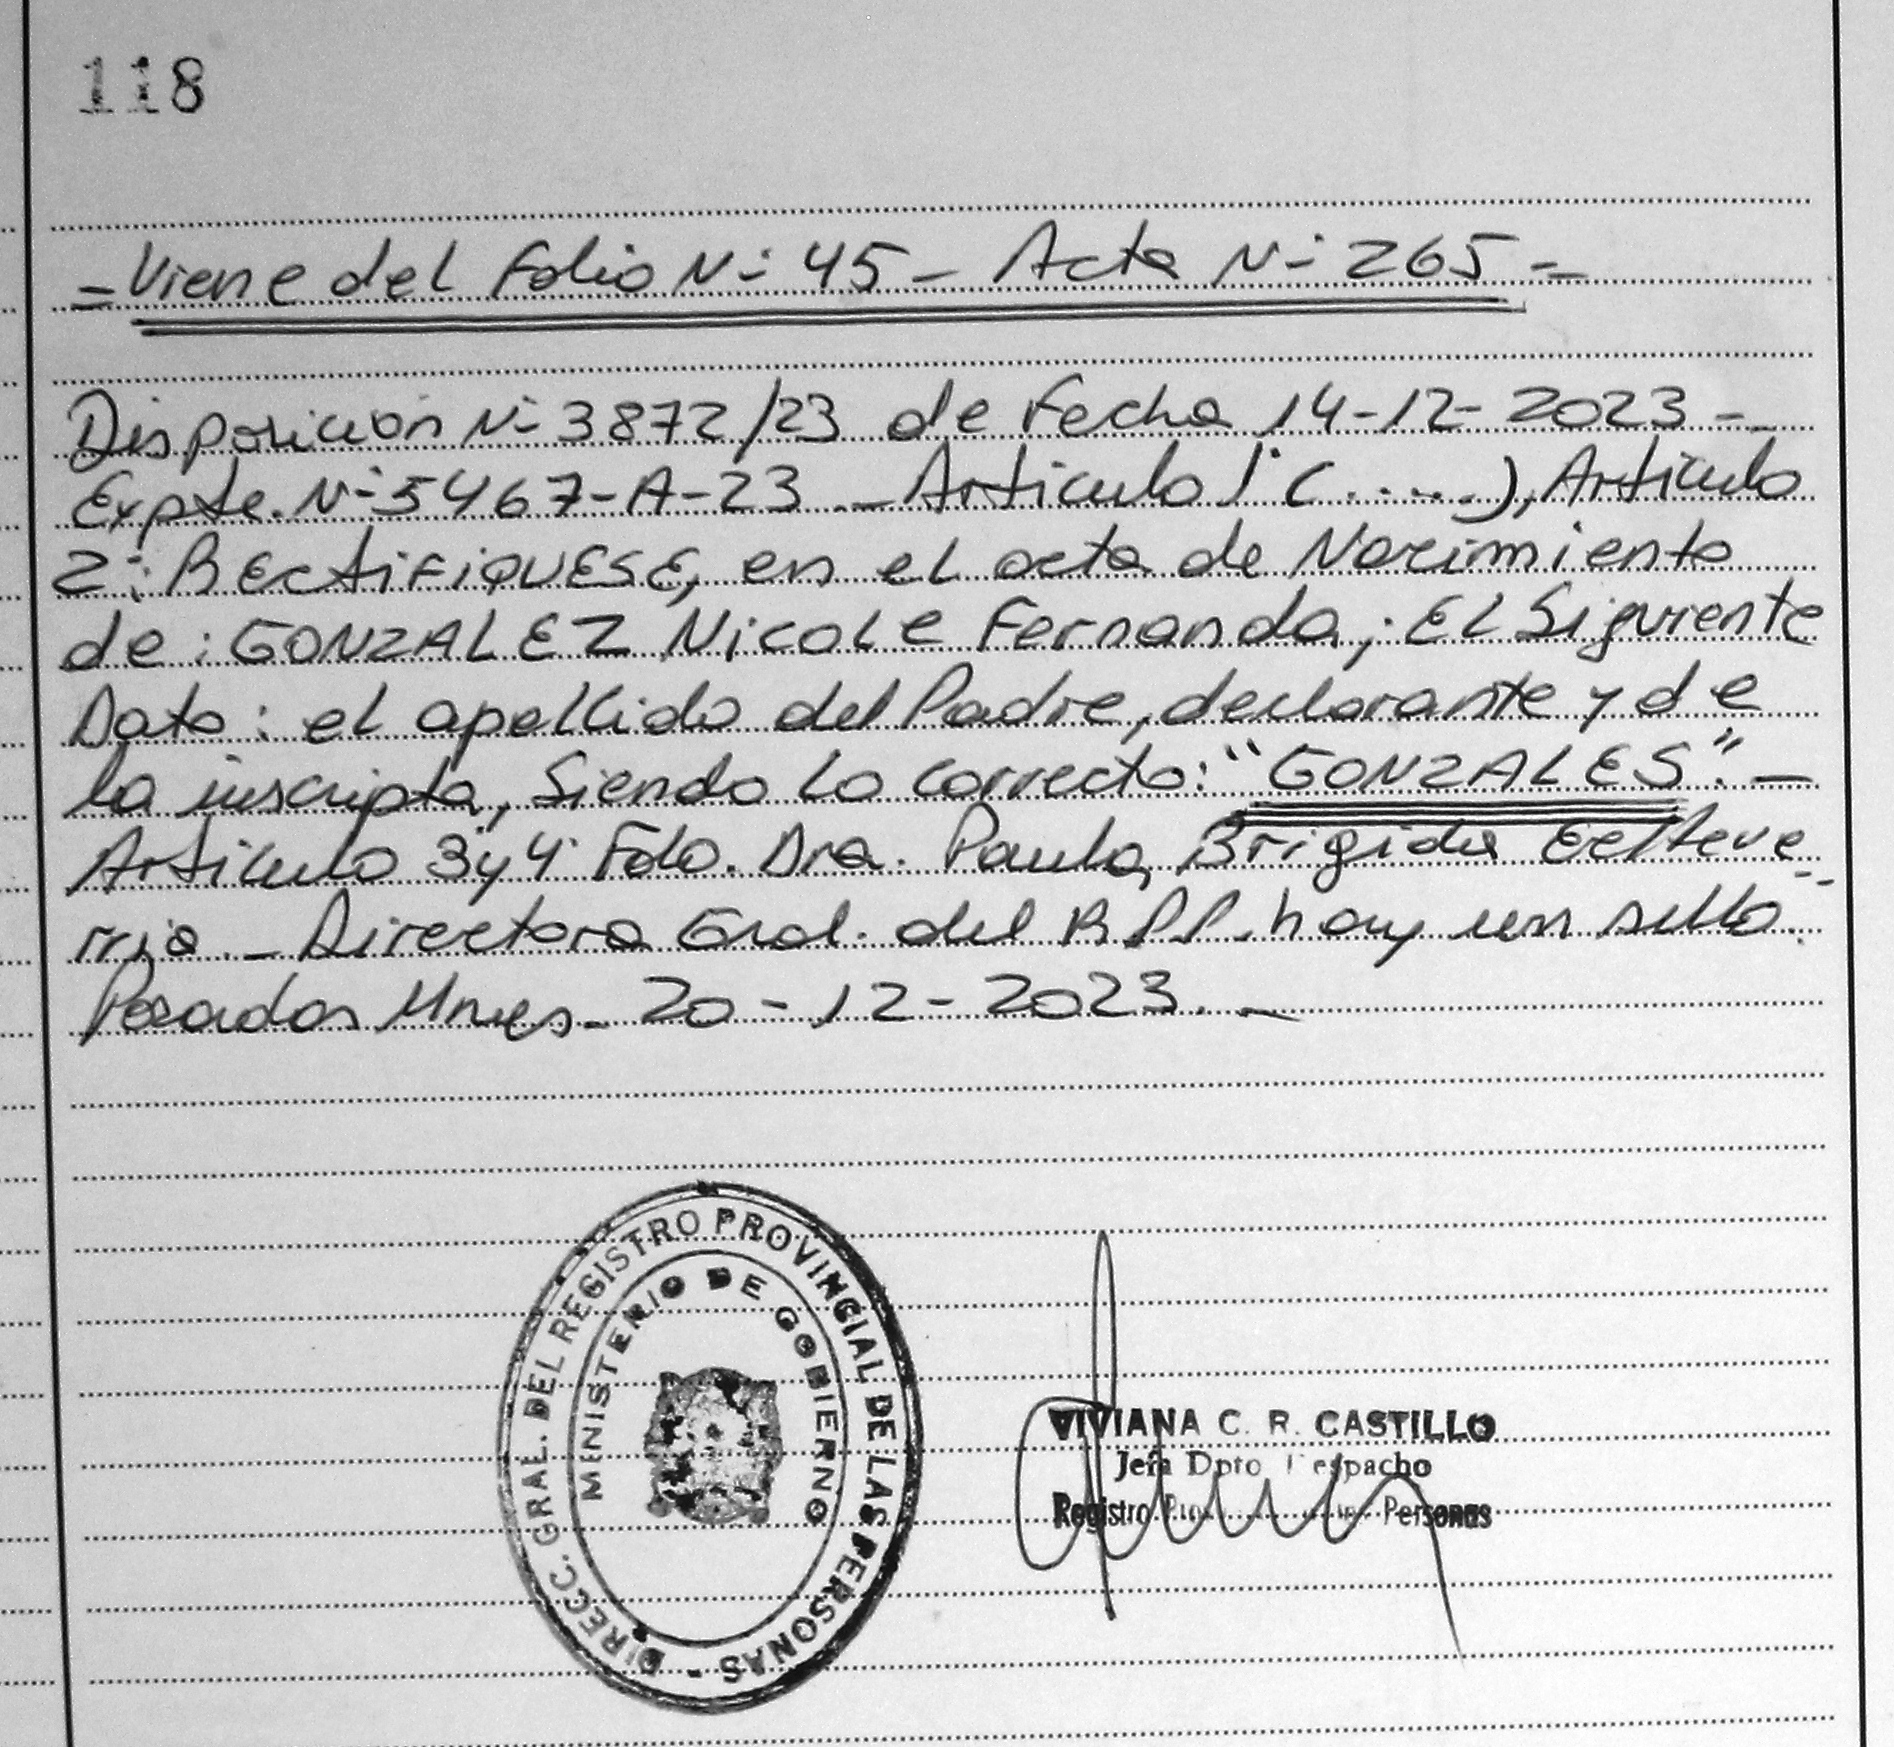 118
= Viene del Folio N- 45 - Acta N- 265 =
Disposición N- 3872/23 de Fecha 14-12-2023 -
Expte. N- 5467-A-23 - Articulo 1° (.....), Articulo
2°: RECTIFIQUESE, en el acta de Nacimiento
de: GONZALEZ Nicole Fernanda; El Siguiente
Dato: el apellido del Padre, declarante y de
la inscripta, Siendo lo correcto: "GONZALES". -
Articulo 3y4° Fdo. Dra. Paula Brigida Echeve
rria. - Directora Gral. del R.P.P. hay un sello.
Posadas Mnes. 20-12-2023. -
DIRECC. GRAL. DEL REGISTRO PROVINCIAL DE LAS PERSONAS -
MINISTERIO DE GOBIERNO
VIVIANA C. R. CASTILLO
Jefa Dpto Despacho
Registro Personas